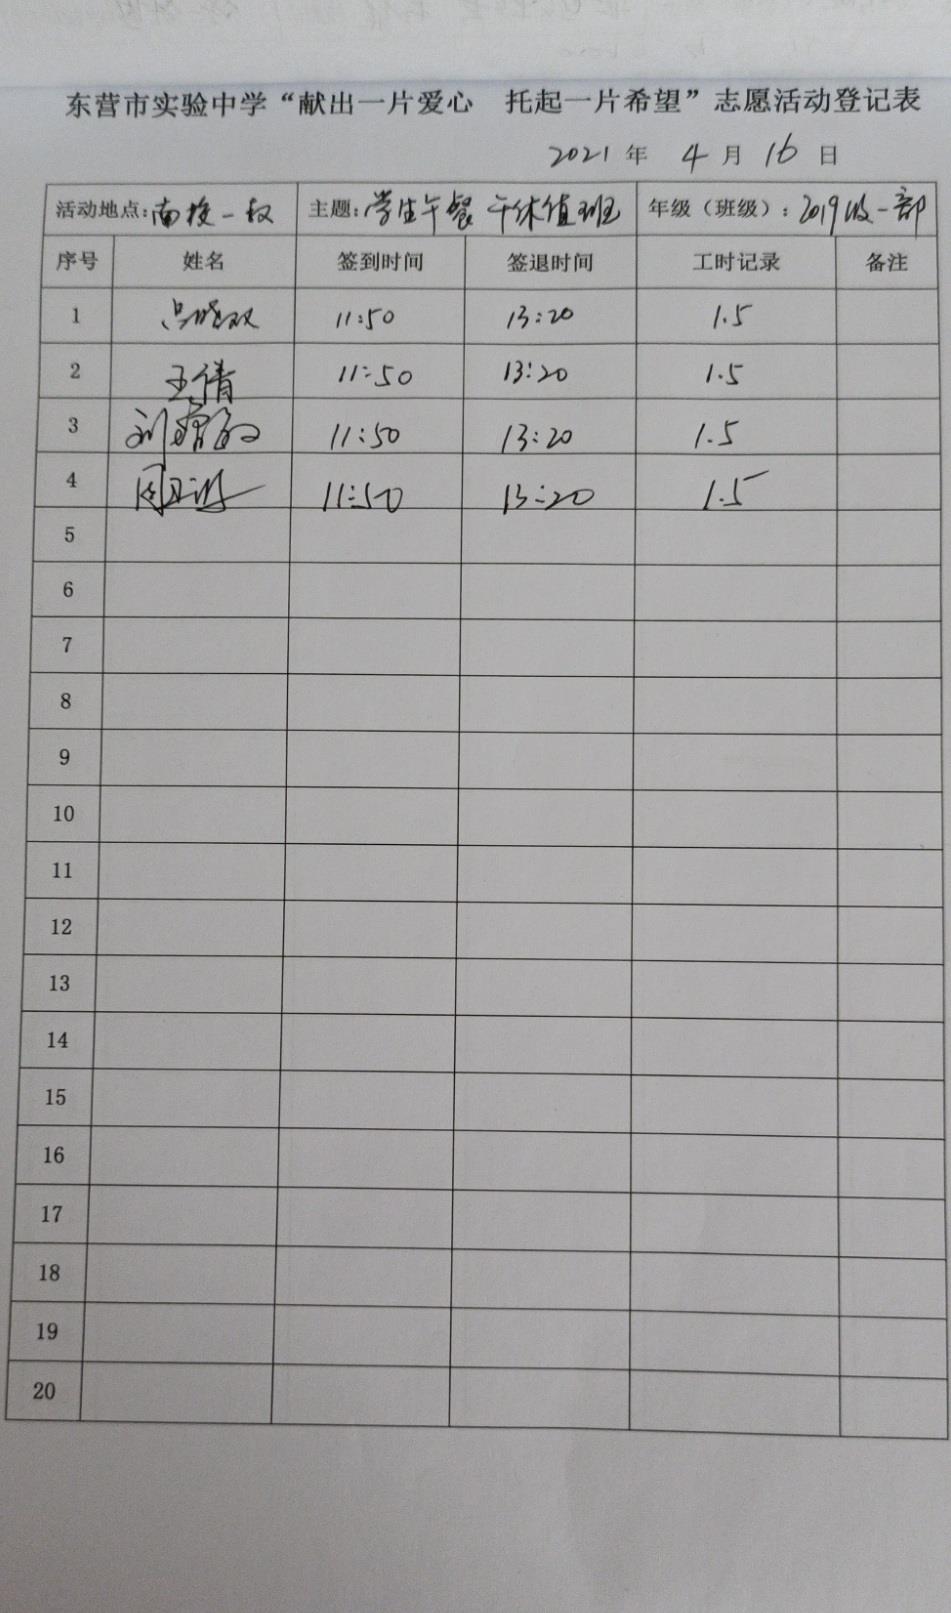 东营市实验中学“献出一片爱心 托起一片希望”志愿活动登记表
2021 年 4 月 16 日
活动地点: 南校一 主题: 学生午餐 午休值班 年级（班级）: 2019级一部
序号 姓名 签到时间 签退时间 工时记录 备注
1 吕晓双 11:50 13:20 1.5
2 王倩 11:50 13:20 1.5
3 刘 11:50 13:20 1.5
4 周 11:50 13:20 1.5
5
6
7
8
9
10
11
12
13
14
15
16
17
18
19
20